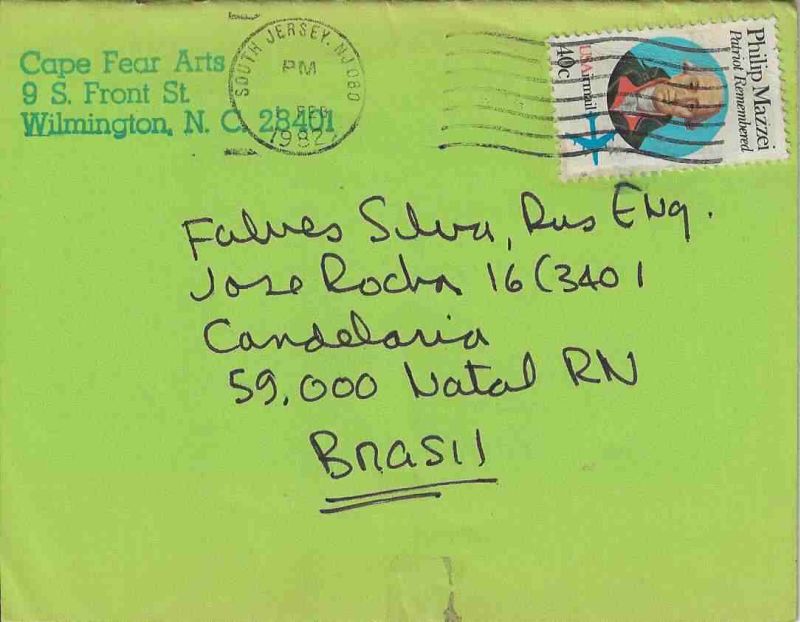 Cape Fear Arts
9 S. Front St.
Wilmington, N. C. 28401
SOUTH JERSEY, NJ 080
PM
1982
Philip Mazzei
Patriot Remembered
USAirmail
40c
Falves Silva, Rus Eng.
Jose Rocha 16 (3401
Candelaria
59,000 Natal RN
Brasil